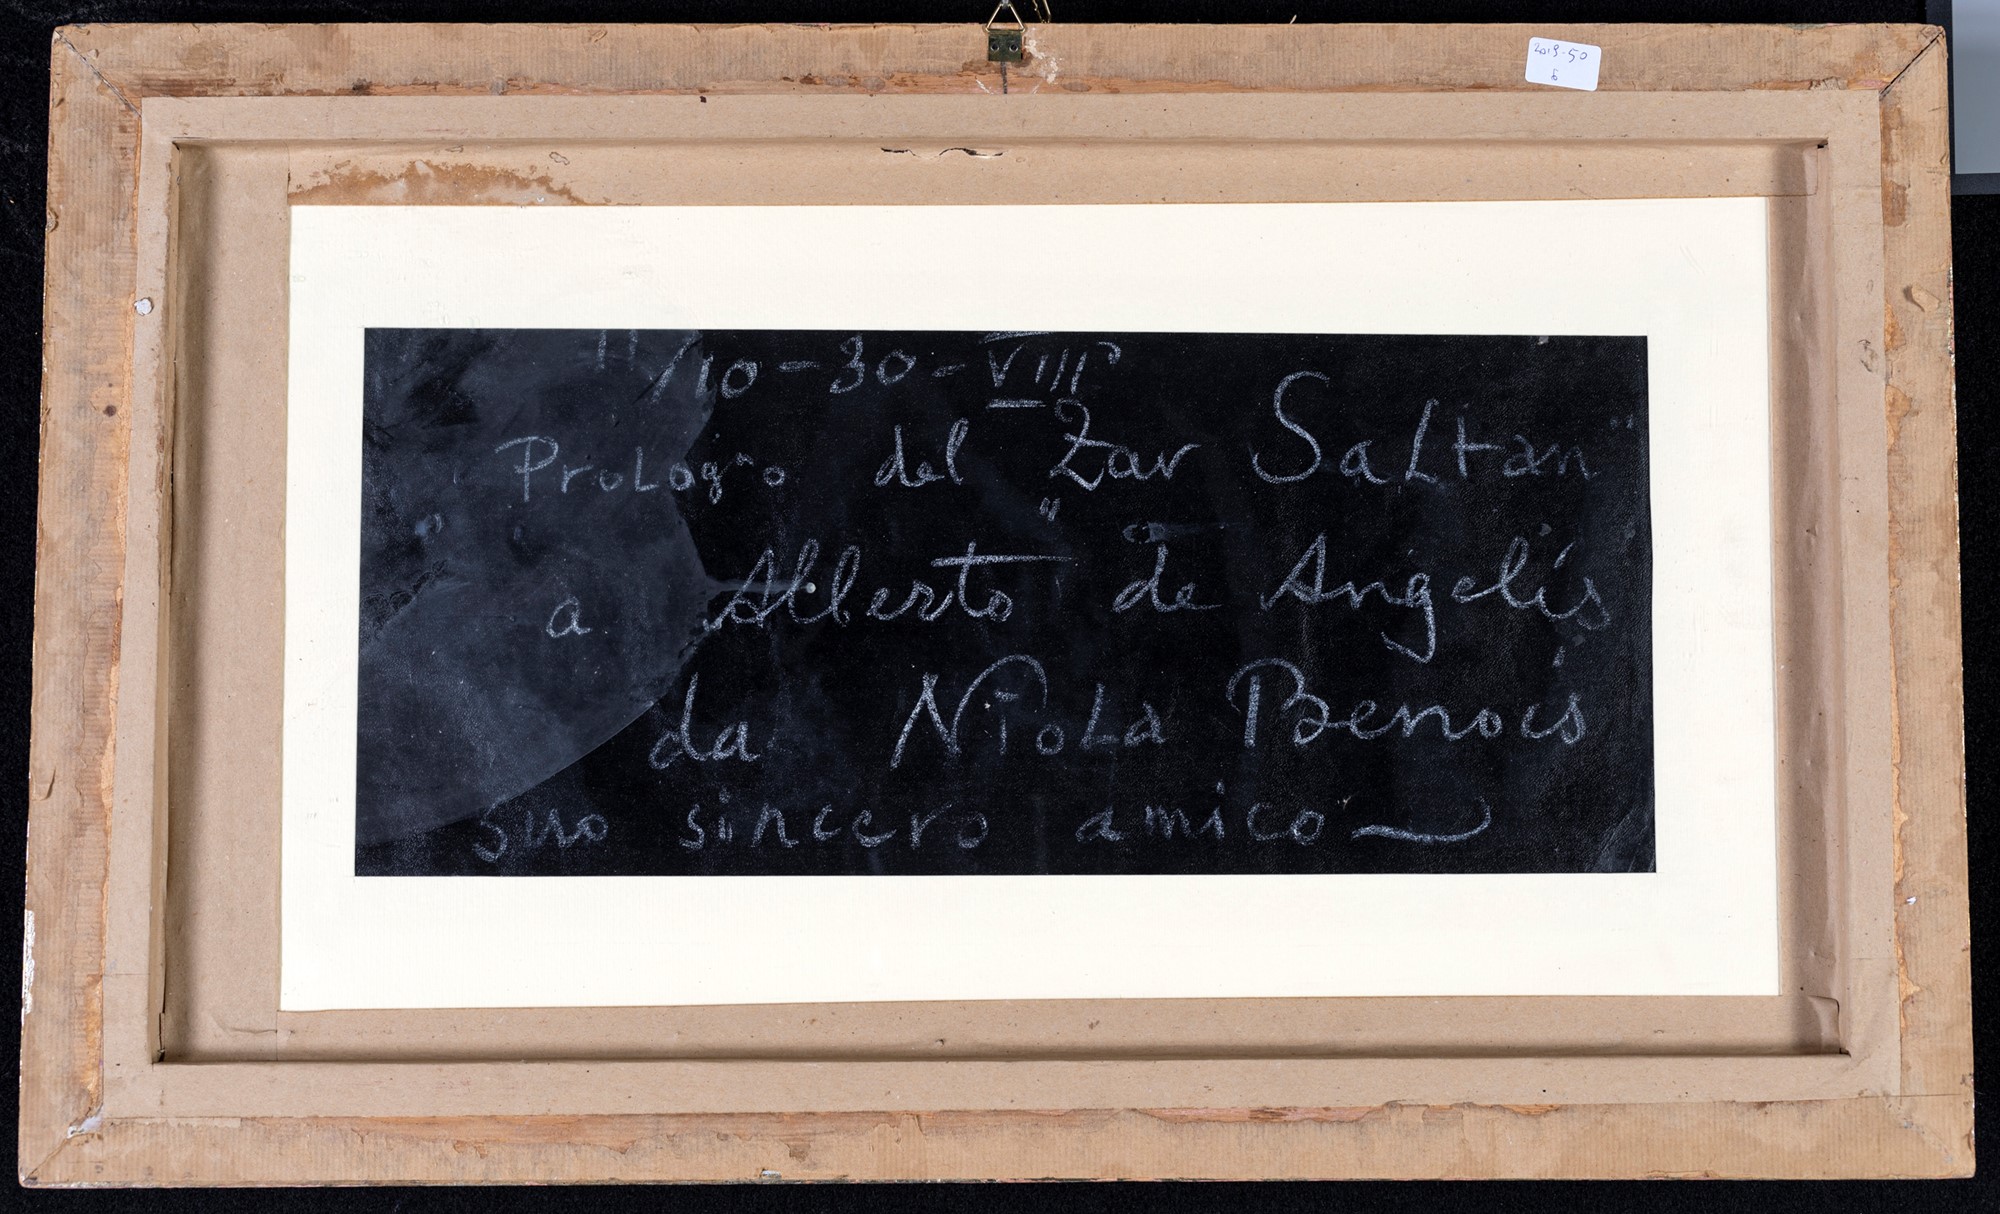 2019-50
6
11/10-30-VIII°
Prologo del "Zar Saltan"
a Alberto de Angelis
da Niola Benois
suo sincero amico